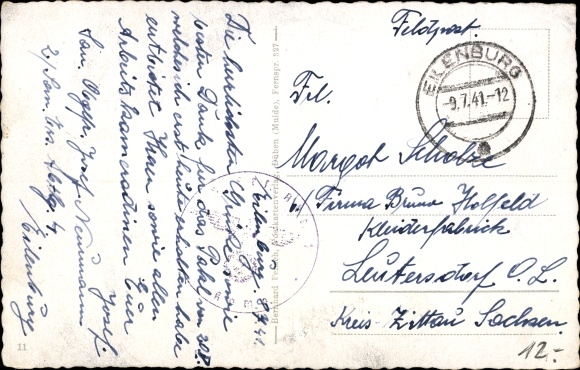 Feldpost.
EILENBURG
-9.7.41.-12
Frl.
Margot Scholze
b/ Firma Bruno Holfeld
Kleiderfabrik
Leutersdorf O. L.
Kreis-Zittau Sachsen.
12.-
Eilenburg. 8.7.41.
Die herzlichsten Grüße sowie
besten Dank für das Paket vom
welches ich erst heute erhalten habe
entbietet Ihnen sowie allen
Arbeitskameradinen Euer
Josef.
San. Josef Neumann
2. San. Ers. Abtlg. 4
Eilenburg
Düben (Mulde), Fernspr. 327
11